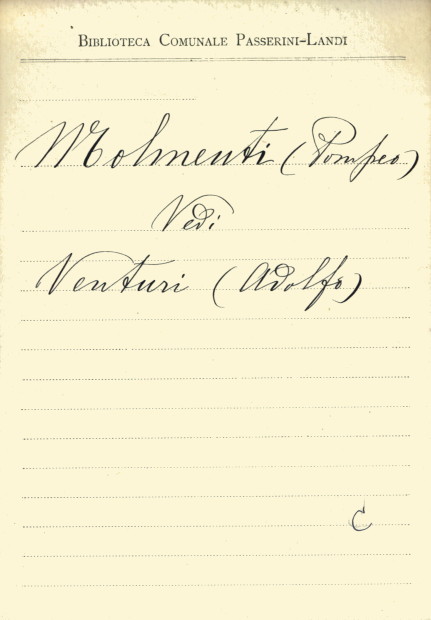 Biblioteca Comunale Passerini-Landi
Molmenti (Pompeo)
Vedi
Venturi (Adolfo)
C